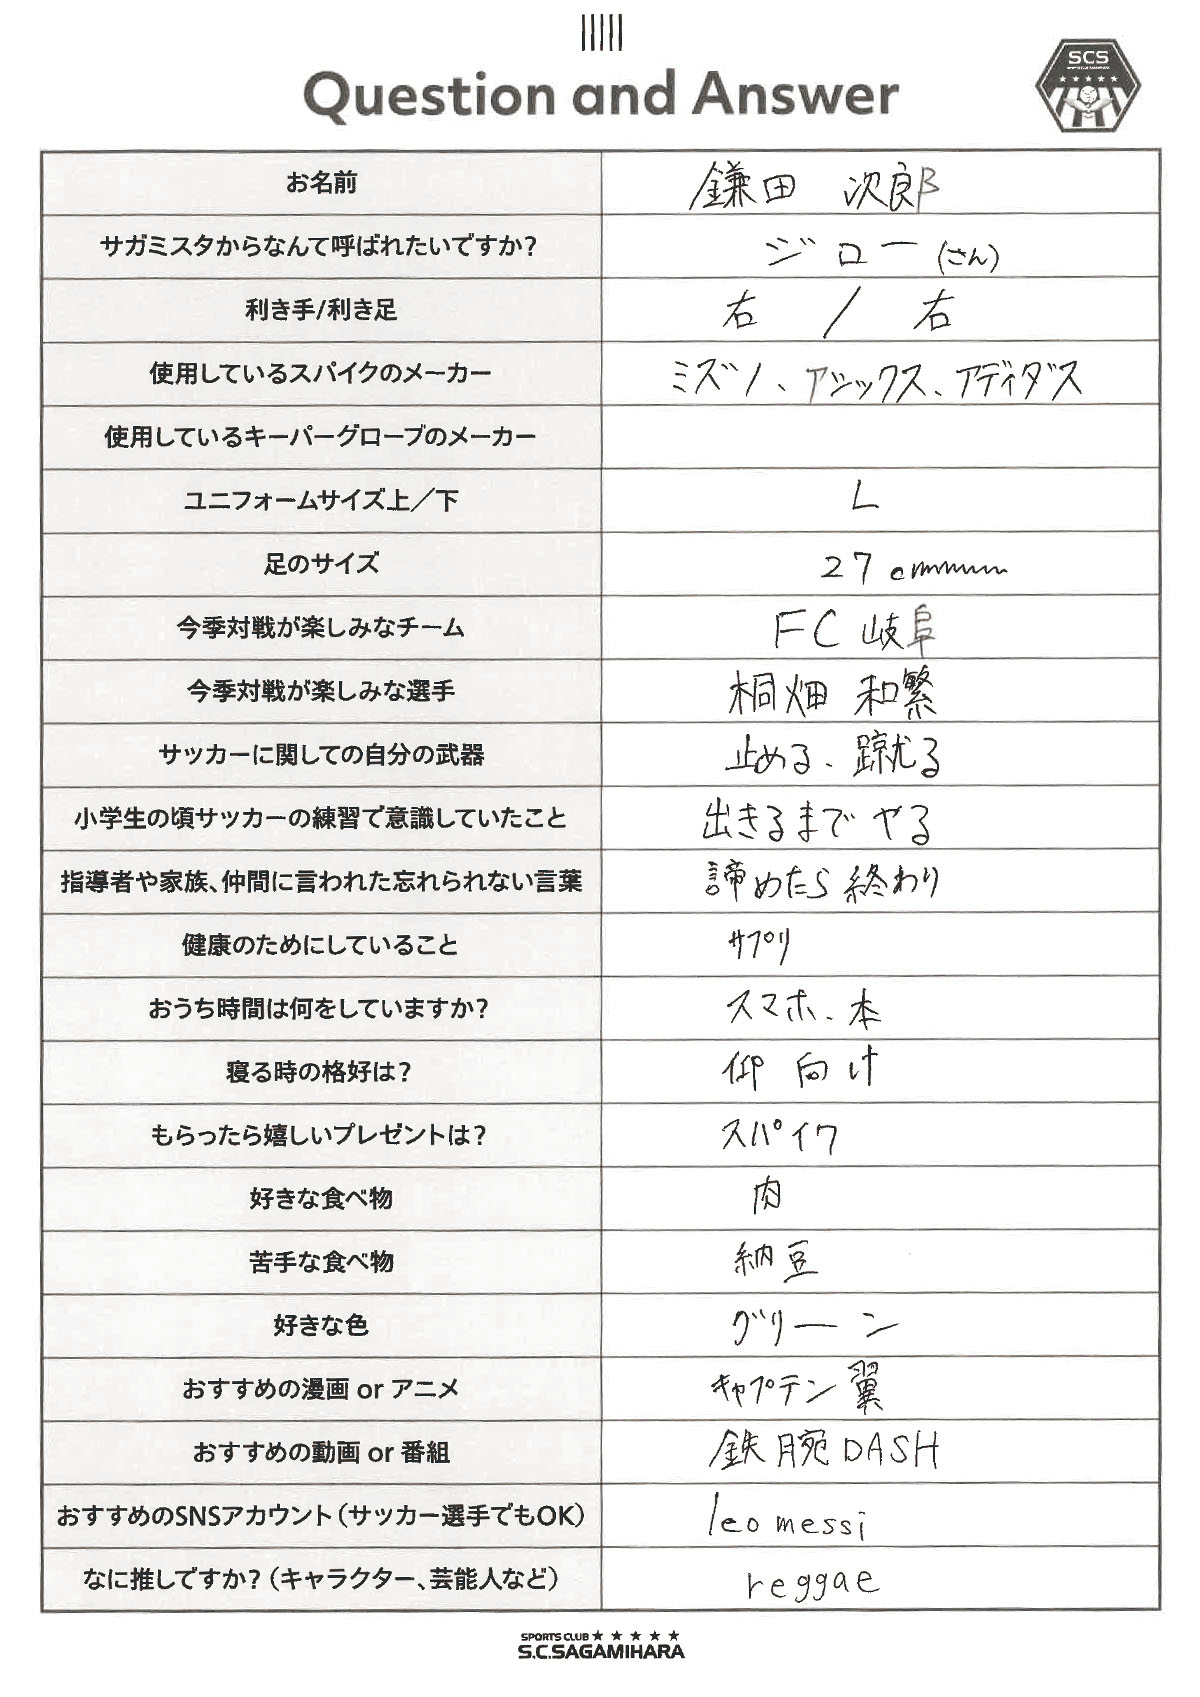 Question and Answer
SCS
お名前 鎌田 次郎
サガミスタからなんて呼ばれたいですか? ジロー(さん)
利き手/利き足 右 / 右
使用しているスパイクのメーカー ミズノ、アシックス、アディダス
使用しているキーパーグローブのメーカー
ユニフォームサイズ上/下 L
足のサイズ 27cm
今季対戦が楽しみなチーム FC岐阜
今季対戦が楽しみな選手 桐畑 和繁
サッカーに関しての自分の武器 止める、蹴る
小学生の頃サッカーの練習で意識していたこと 出きるまでやる
指導者や家族、仲間に言われた忘れられない言葉 諦めたら終わり
健康のためにしていること サプリ
おうち時間は何をしていますか? スマホ、本
寝る時の格好は? 仰向け
もらったら嬉しいプレゼントは? スパイク
好きな食べ物 肉
苦手な食べ物 納豆
好きな色 グリーン
おすすめの漫画 or アニメ キャプテン翼
おすすめの動画 or 番組 鉄腕DASH
おすすめのSNSアカウント(サッカー選手でもOK) leo messi
なに推しですか?(キャラクター、芸能人など) reggae
SPORTS CLUB ★★★★★
S.C.SAGAMIHARA